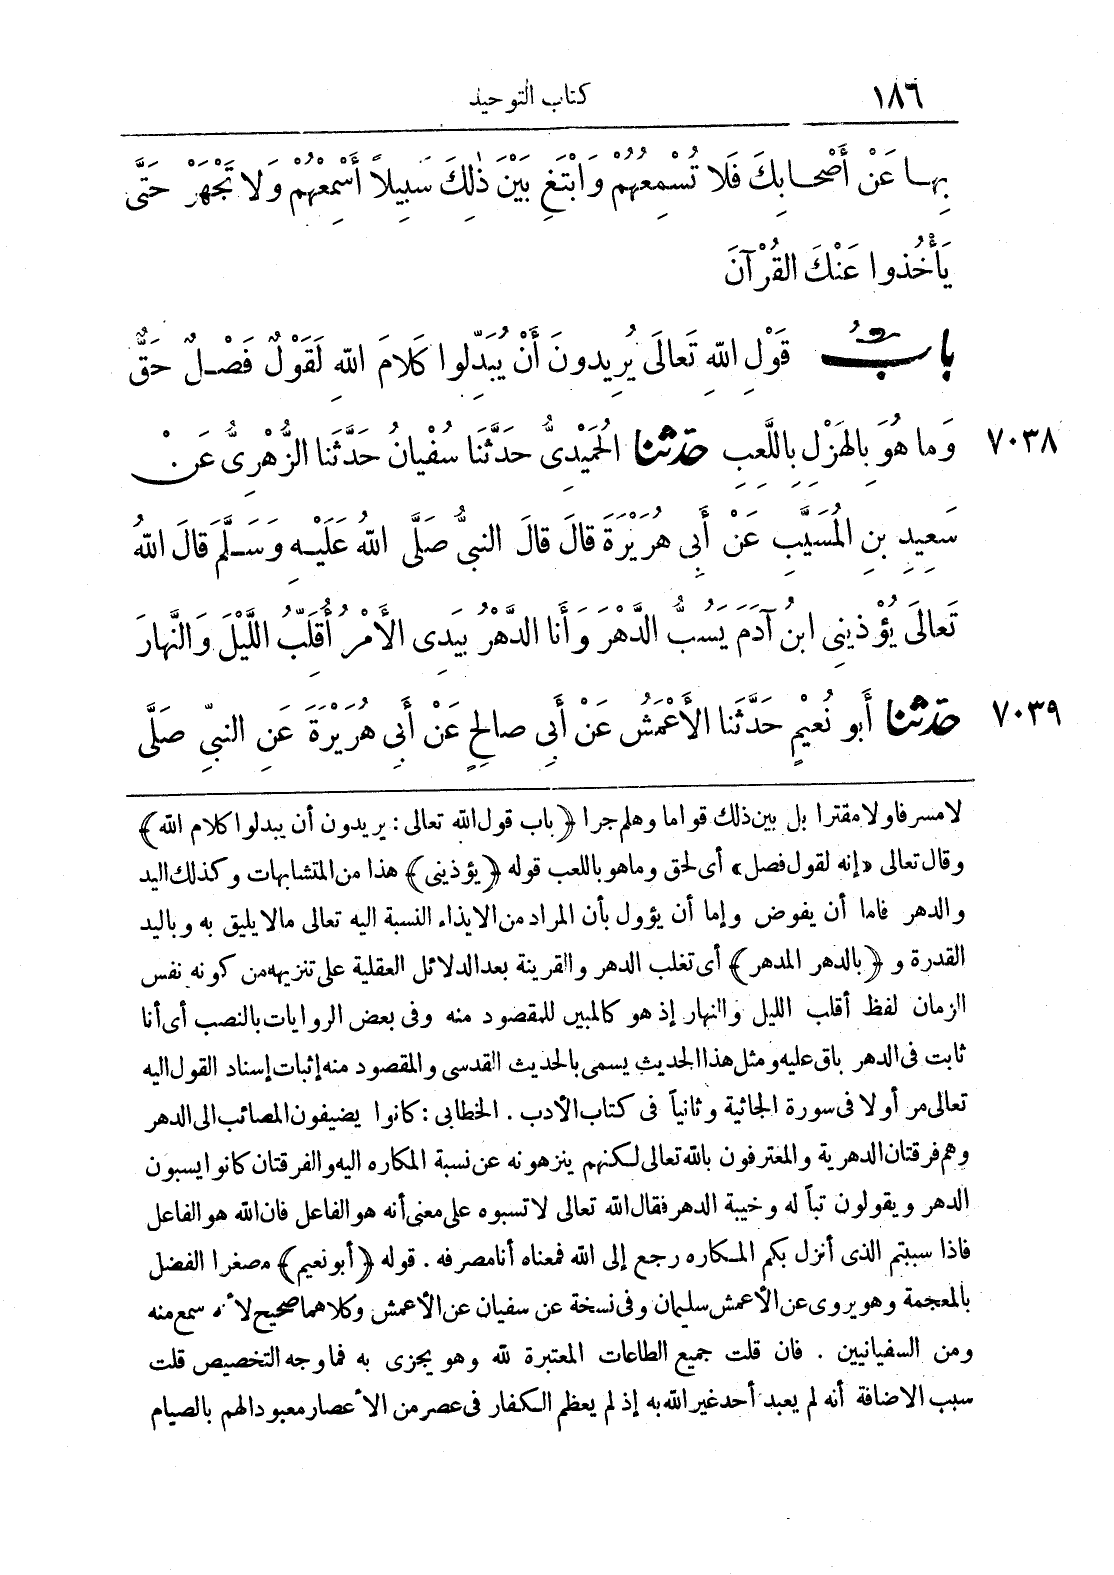 ١٨٦ كتاب التوحيد
بِهَا عَنْ أَصْحَابِكَ فَلَا تُسْمِعُهُمْ وَابْتَغِ بَيْنَ ذٰلِكَ سَبِيلًا أَسْمِعْهُمْ وَلَا تَجْهَرْ حَتَّى
يَأْخُذُوا عَنْكَ القُرْآنَ
بابُ قَوْلِ اللهِ تَعالَى يُرِيدُونَ أَنْ يُبَدِّلُوا كَلَامَ اللهِ لَقَوْلٌ فَصْلٌ حَقٌّ
٧٠٣٨ وَما هُوَ بِالهَزْلِ بِاللَّعِبِ حدثنا الحُمَيْدِىُّ حَدَّثَنَا سُفْيانُ حَدَّثَنَا الزُّهْرِىُّ عَنْ
سَعِيدِ بنِ المُسَيَّبِ عَنْ أَبِى هُرَيْرَةَ قالَ قالَ النبىُّ صَلَّى اللهُ عَلَيْهِ وَسَلَّمَ قالَ اللهُ
تَعالَى يُؤْذِينِى ابنُ آدَمَ يَسُبُّ الدَّهْرَ وَأَنا الدَّهْرُ بِيَدِى الأَمْرُ أُقَلِّبُ اللَّيْلَ وَالنَّهارَ
٧٠٣٩ حدثنا أَبو نُعَيْمٍ حَدَّثَنا الأَعْمَشُ عَنْ أَبِى صالِحٍ عَنْ أَبِى هُرَيْرَةَ عَنِ النبىِّ صَلَّى
لا مسرفا ولا مقترا بل بين ذلك قواما وهلم جرا ﴿باب قول الله تعالى: يريدون أن يبدلوا كلام الله﴾
وقال تعالى «إنه لقول فصل» أى لحق وما هو باللعب قوله ﴿يؤذينى﴾ هذا من المتشابهات وكذلك اليد
والدهر فاما أن يفوض وإما أن يؤول بأن المراد من الايذاء النسبة اليه تعالى مالا يليق به وباليد
القدرة و ﴿بالدهر المدهر﴾ أى تغلب الدهر والقرينة بعد الدلائل العقلية على تنزيهه من كونه نفس
الزمان لفظ أقلب الليل والنهار إذ هو كالمبين للمقصود منه وفى بعض الروايات بالنصب أى أنا
ثابت فى الدهر باق عليه ومثل هذا الحديث يسمى بالحديث القدسى والمقصود منه إثبات إسناد القول اليه
تعالى مر أولا فى سورة الجاثية وثانياً فى كتاب الأدب. الخطابى: كانوا يضيفون المصائب الى الدهر
وهم فرقتان الدهرية والمعترفون بالله تعالى لكنهم ينزهونه عن نسبة المكاره اليه والفرقتان كانوا يسبون
الدهر ويقولون تباً له وخيبة الدهر فقال الله تعالى لا تسبوه على معنى أنه هو الفاعل فان الله هو الفاعل
فاذا سببتم الذى أنزل بكم المكاره رجع إلى الله فمعناه أنا مصرفه. قوله ﴿أبو نعيم﴾ مصغرا الفضل
بالمعجمة وهو يروى عن الأعمش سليمان وفى نسخة عن سفيان عن الأعمش وكلاهما صحيح لأنه سمع منه
ومن السفيانيين. فان قلت جميع الطاعات المعتبرة لله وهو يجزى به فما وجه التخصيص قلت
سبب الاضافة أنه لم يعبد أحد غير الله به إذ لم يعظم الكفار فى عصر من الأعصار معبودا لهم بالصيام